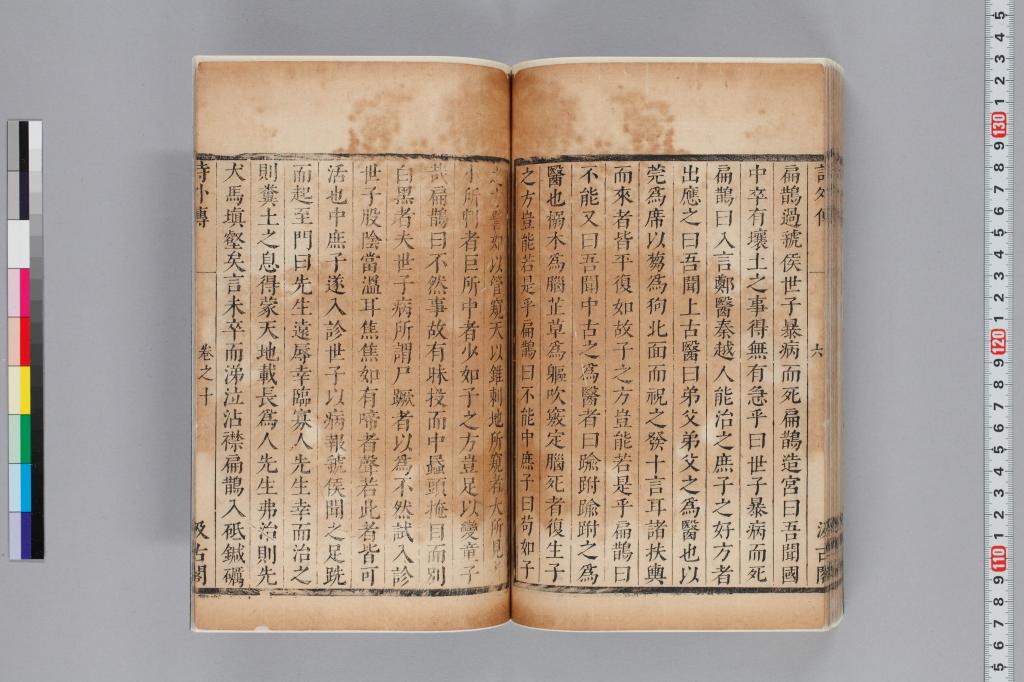 六
扁鵲過虢侯世子暴病而死扁鵲造宮曰吾聞國
中卒有壤土之事得無有急乎曰世子暴病而死
扁鵲曰入言鄭醫秦越人能治之庶子之好方者
出應之曰吾聞上古醫曰弟父弟父之為醫也以
莞爲席以芻爲狗北面而祝之發十言耳諸扶輿
而來者皆平復如故子之方豈能若是乎扁鵲曰
不能又曰吾聞中古之爲醫者曰踰跗踰跗之爲
醫也搦木爲腦芷草爲軀吹竅定腦死者復生子
之方豈能若是乎扁鵲曰不能中庶子曰苟如子
之方譬如以管窺天以錐刺地所窺者大所見
小所刺者巨所中者少如子之方豈足以變童子
哉扁鵲曰不然事故有昧投而中蟁頭掩目而別
白黑者夫世子病所謂尸蹶者以爲不然試入診
世子股陰當溫耳焦焦如有啼者聲若此者皆可
活也中庶子遂入診世子以病報虢侯聞之足跣
而起至門曰先生遠辱幸臨寡人先生幸而治之
則糞土之息得蒙天地載長爲人先生弗治則先
犬馬填壑矣言未卒而涕泣沾襟扁鵲入砥鍼礪
詩外傳
卷之十
汲古閣